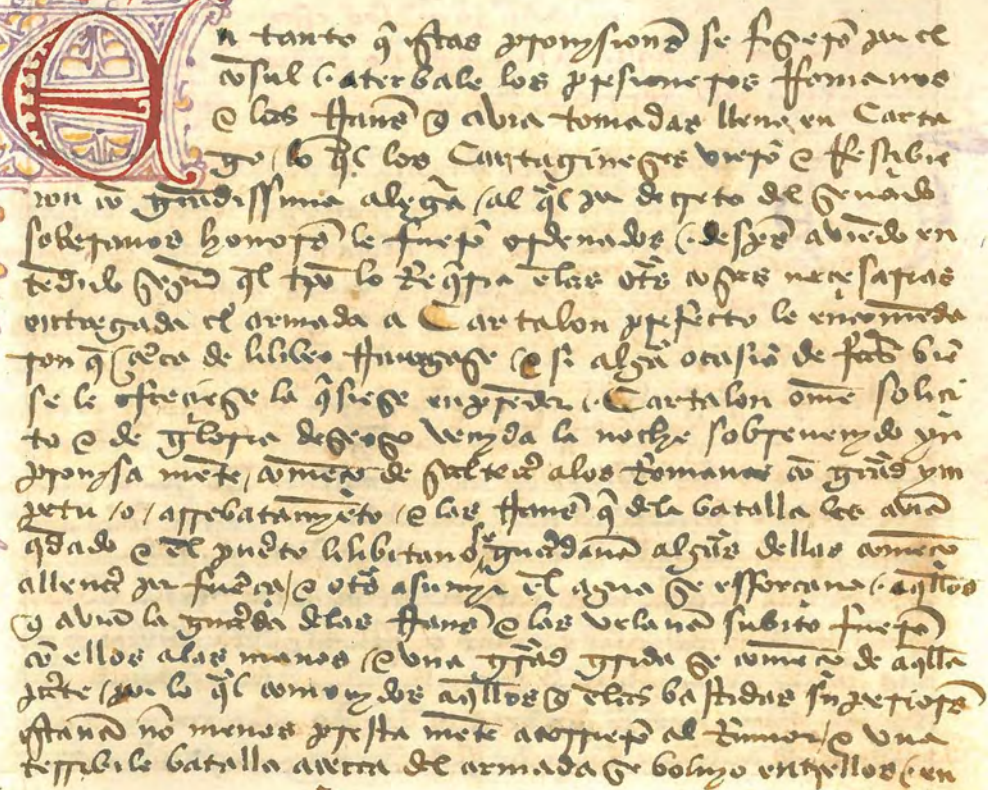 En tanto q̃ estas prouysionẽs se fizierõ por el
cõsul / aterbale los presioneros Romanos
& las naues q̃ auia tomadas lleuo en Carta
go / lo q̃l los Cartagineses vierõ & rresçibie
ron cõ grãdissima alegrã / al q̃l por decreto del senado
soberanos honores le fuerõ ordenados / despues auiẽdo en
tẽdido segũd q̃l tpõ lo req̃ria & las otras cosas neçesarias
entregada el armada a Cartalon prefecto le encomẽda
ron q̃ çerca de lilibeo nauegase / & si algũa ocasiõ de fazer biẽ
se le ofreçiese la q̃siese enprẽder / Cartalon omẽ soliçi
to & de gloria deseoso venyda la noche sobreuenyẽdo yn
prouysa mẽte / comẽço de saltear alos Romanos cõ grãd ym
petu / o / arrebatamyẽto / & las naues q̃ dela batalla les auiã
q̃dado & el puerto lilibitano se guardauã algũas dellas comẽço
alleuar por fuerça / & otras a sumyr el agua se esforçaua / aq̃llos
q̃ auiã la guarda delas naues & las velauã subito fuerõ
cõ ellos alas manos / & una grãd grida se comẽço de aq̃lla
parte / por lo q̃l comouydos aq̃llos q̃ elas bastidas superiores
estauã nõ menos presta mẽte acorrierõ al Rumor / & una
terrible batalla açerca del armada se boluyo entrellos / en